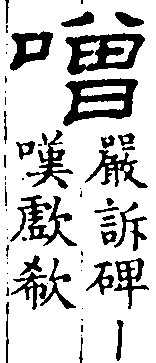 噌
嚴訴碑｜
嘆歔欷